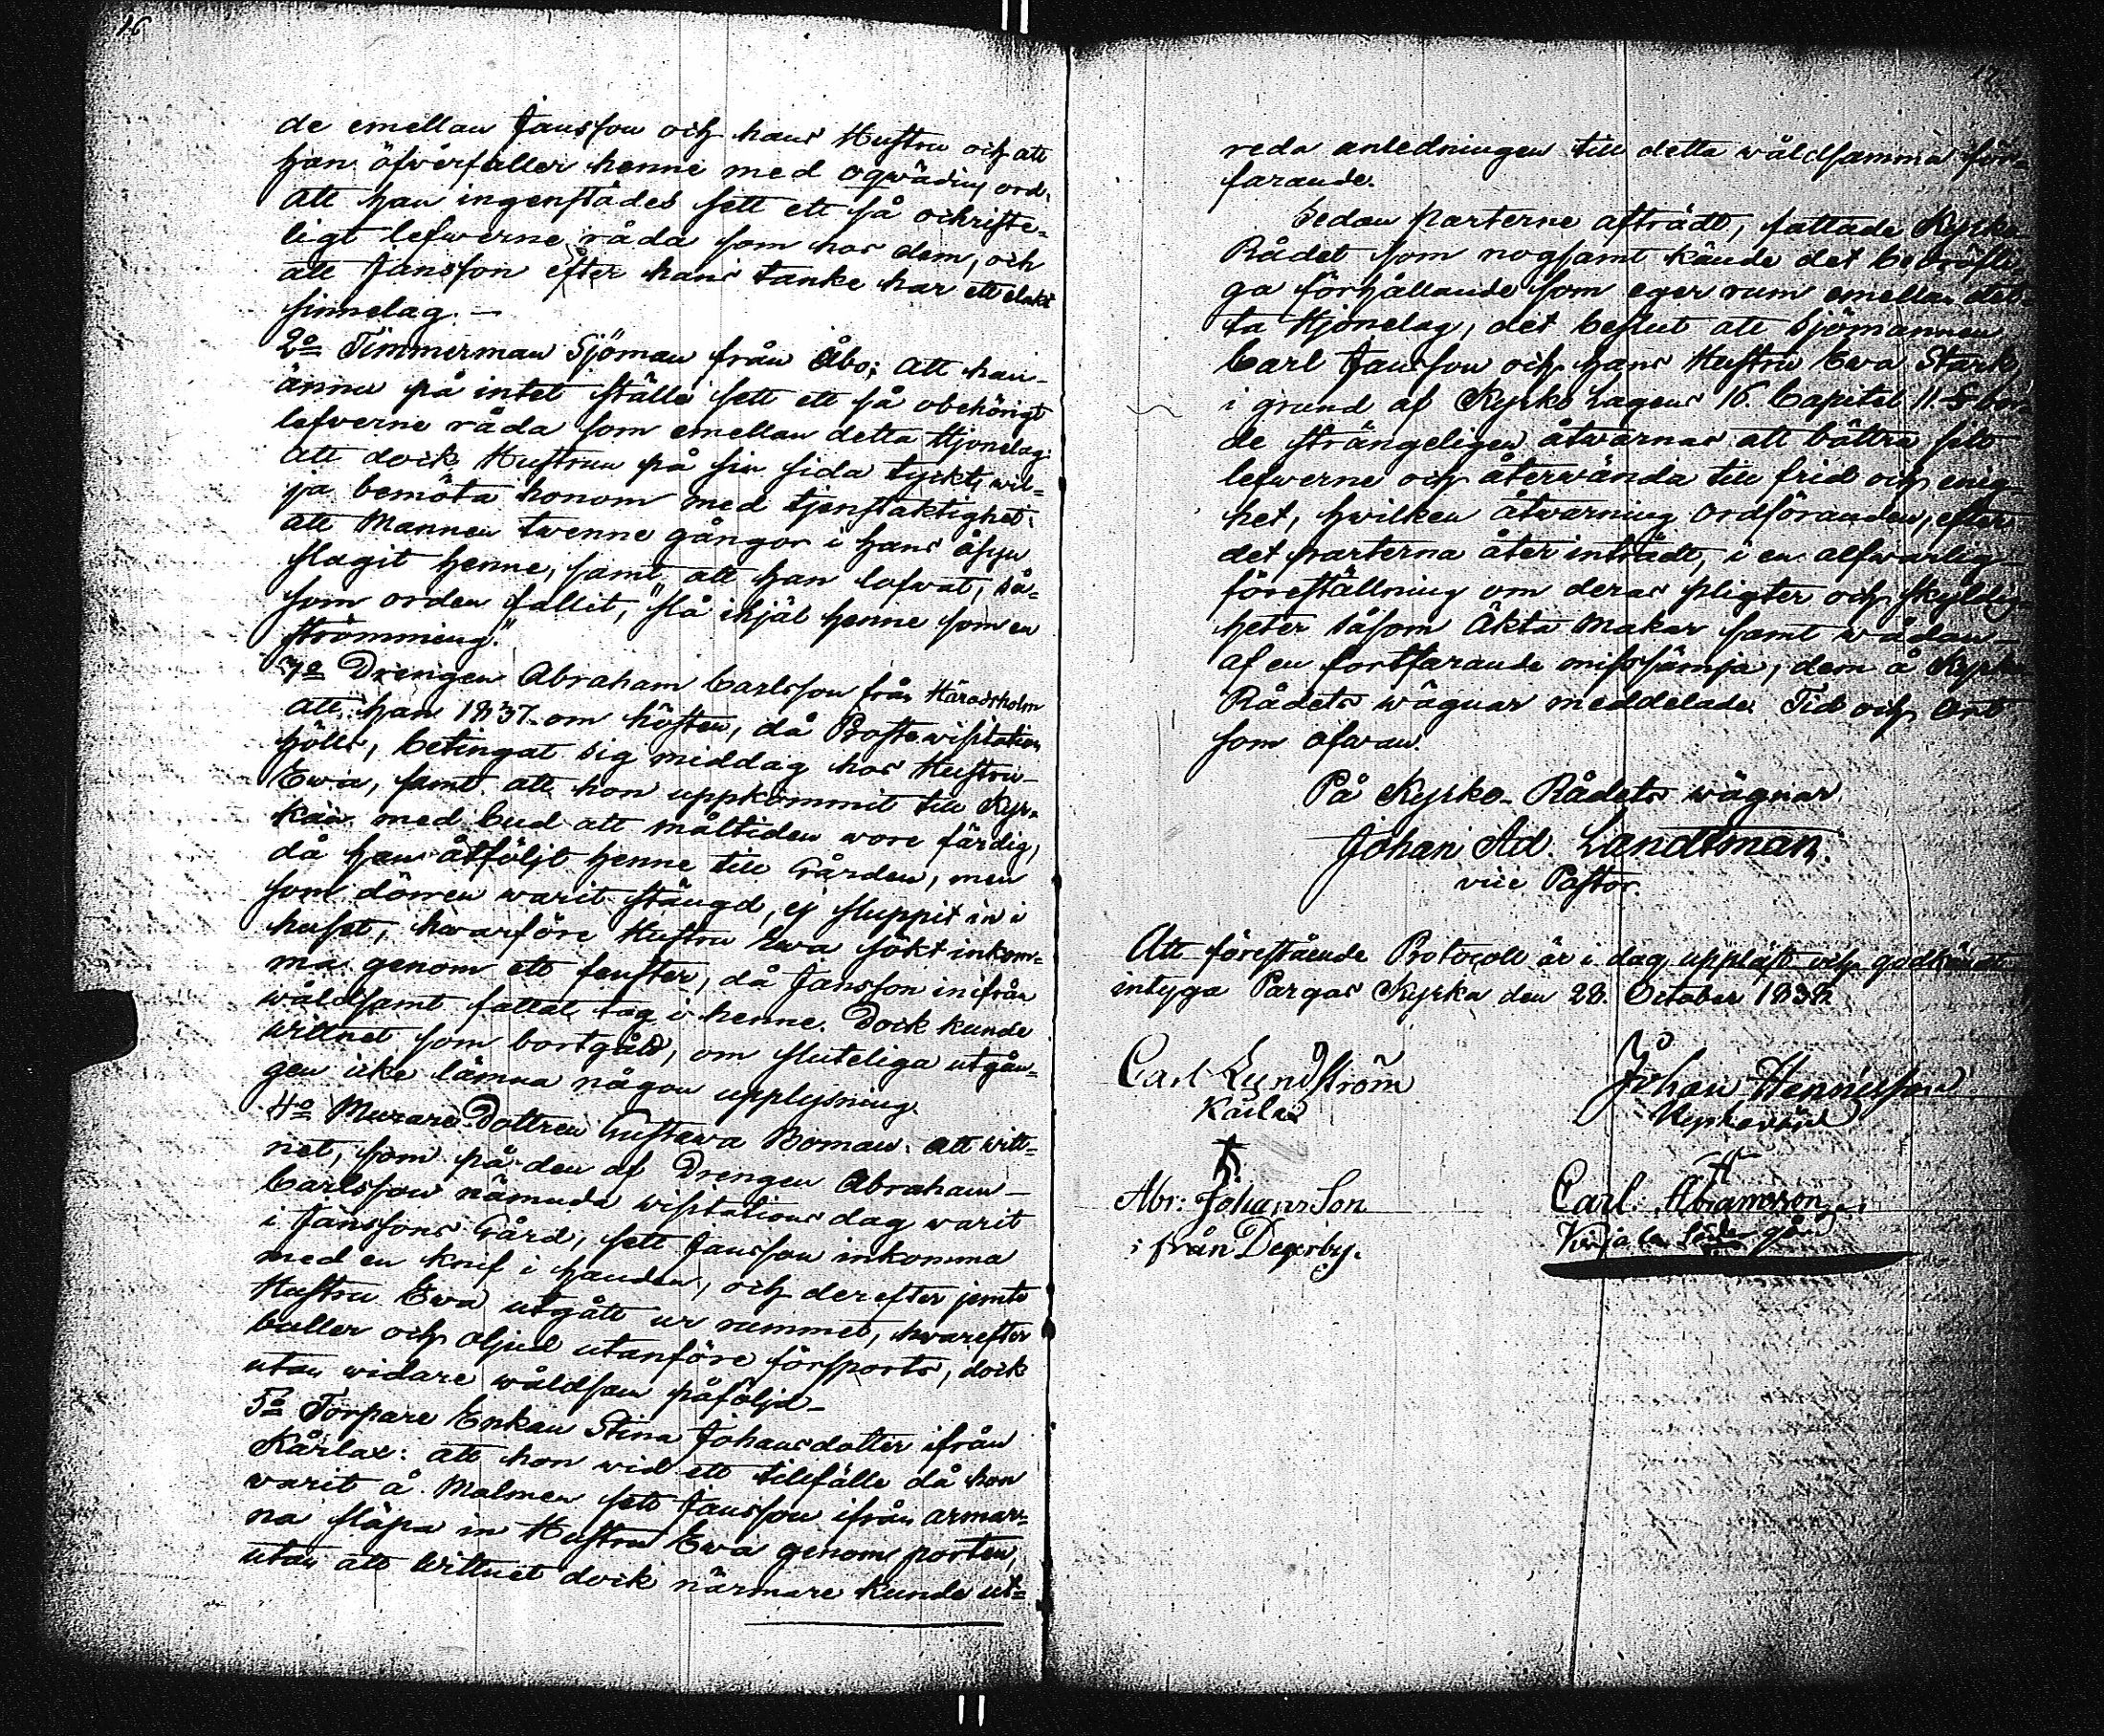 16
de emellan Jansson och hans Hustru och att
han öfverfaller henne med oqwädins ord,
att han ingenstädes sett ett så ochriste-
ligt lefwerne råda som hos dem, och
att Jansson efter hans tanke har ett elakt
sinnelag.—
2o Timmerman Sjöman från Åbo; att han
ännu på intet ställe sett ett så obehörigt
lefverne råda som emellan detta Hjonelag:
att dock Hustrun på sin sida tyckts wil-
ja bemöta honom med tjenstaktighet:
att Mannen twenne gångor i hans åsyn
slagit henne, samt att han lofvat, så-
som orden fallit, "slå ihjäl henne som en
strömming."
3o Drengen Abraham Carlsson från Häradsholm
att han 1837 om hösten, då Prostewisitation
hölls, betingat sig middag hos Hustru
Ewa, samt att hon uppkommit till Kyr-
kan med bud att måltiden wore färdig,
då han åtföljt henne till Gården, men
som dörren warit stängd, ej sluppit in i
huset, hwarföre Hustru Ewa sökt inkom-
ma genom ett fenster, då Jansson inifrån
wåldsamt fattat tag i henne. Dock kunde
wittnet som bortgått, om sluteliga utgån-
gen icke lämna någon upplysning.
4o Murare Dottren Gustawa Boman: att witt-
net, som på den af Drengen Abraham
Carlsson nämnda wisitations dag warit
i Janssons Gård, sett Jansson inkomma
med en knif i handen, och derefter jemte
Hustru Ewa utgått ur rummet, hwarefter
buller och oljud utanföre försports, dock
utan widare wåldsam påföljd—
5o Torpare Enkan Stina Johansdotter ifrån
Kårlax: att hon wid ett tillfälle då hon
warit å Malmen sett Jansson ifrån armar-
na släpa in Hustru Ewa genom porten,
utan att Wittnet dock närmare kunde ut-
reda anledningen till detta wåldsamma för-
farande.
Sedan Parterne afträdt, fattade Kyrko
Rådet som nogsamt kände det bedröfli-
ga förhållande som eger rum emellan det-
ta Hjonelag, det beslut att Sjömannen
Carl Jansson och hans Hustru Ewa Stark
i grund af Kyrko Lagens 16 Capitel 11. § bor-
de strängeligen åtwarnas att bättra sitt
lefwerne och återwända till frid och enig-
het, hwilken åtwarning Ordföranden, efter
det parterna åter inträdt, i en alfwarlig
föreställning om deras pligter och skyldig-
heter såsom Äkta Makar samt wådan
af en fortfarande misssämja, dem å Kyrko
Rådets wägnar meddelade. Tid och Ort
som ofwan.
På Kyrko-Rådets wägnar
Johan Ad. Landtman.
vice Pastor.
Att förestående Protocoll är i dag uppläst och godkändt
intyga Pargas Kyrka den 28. October 1838.
Carl Lundström
Johan Hennisson
Kyrkovärd
Abr: Johansson
Carl: Abramsson
ifrån Dexerby.